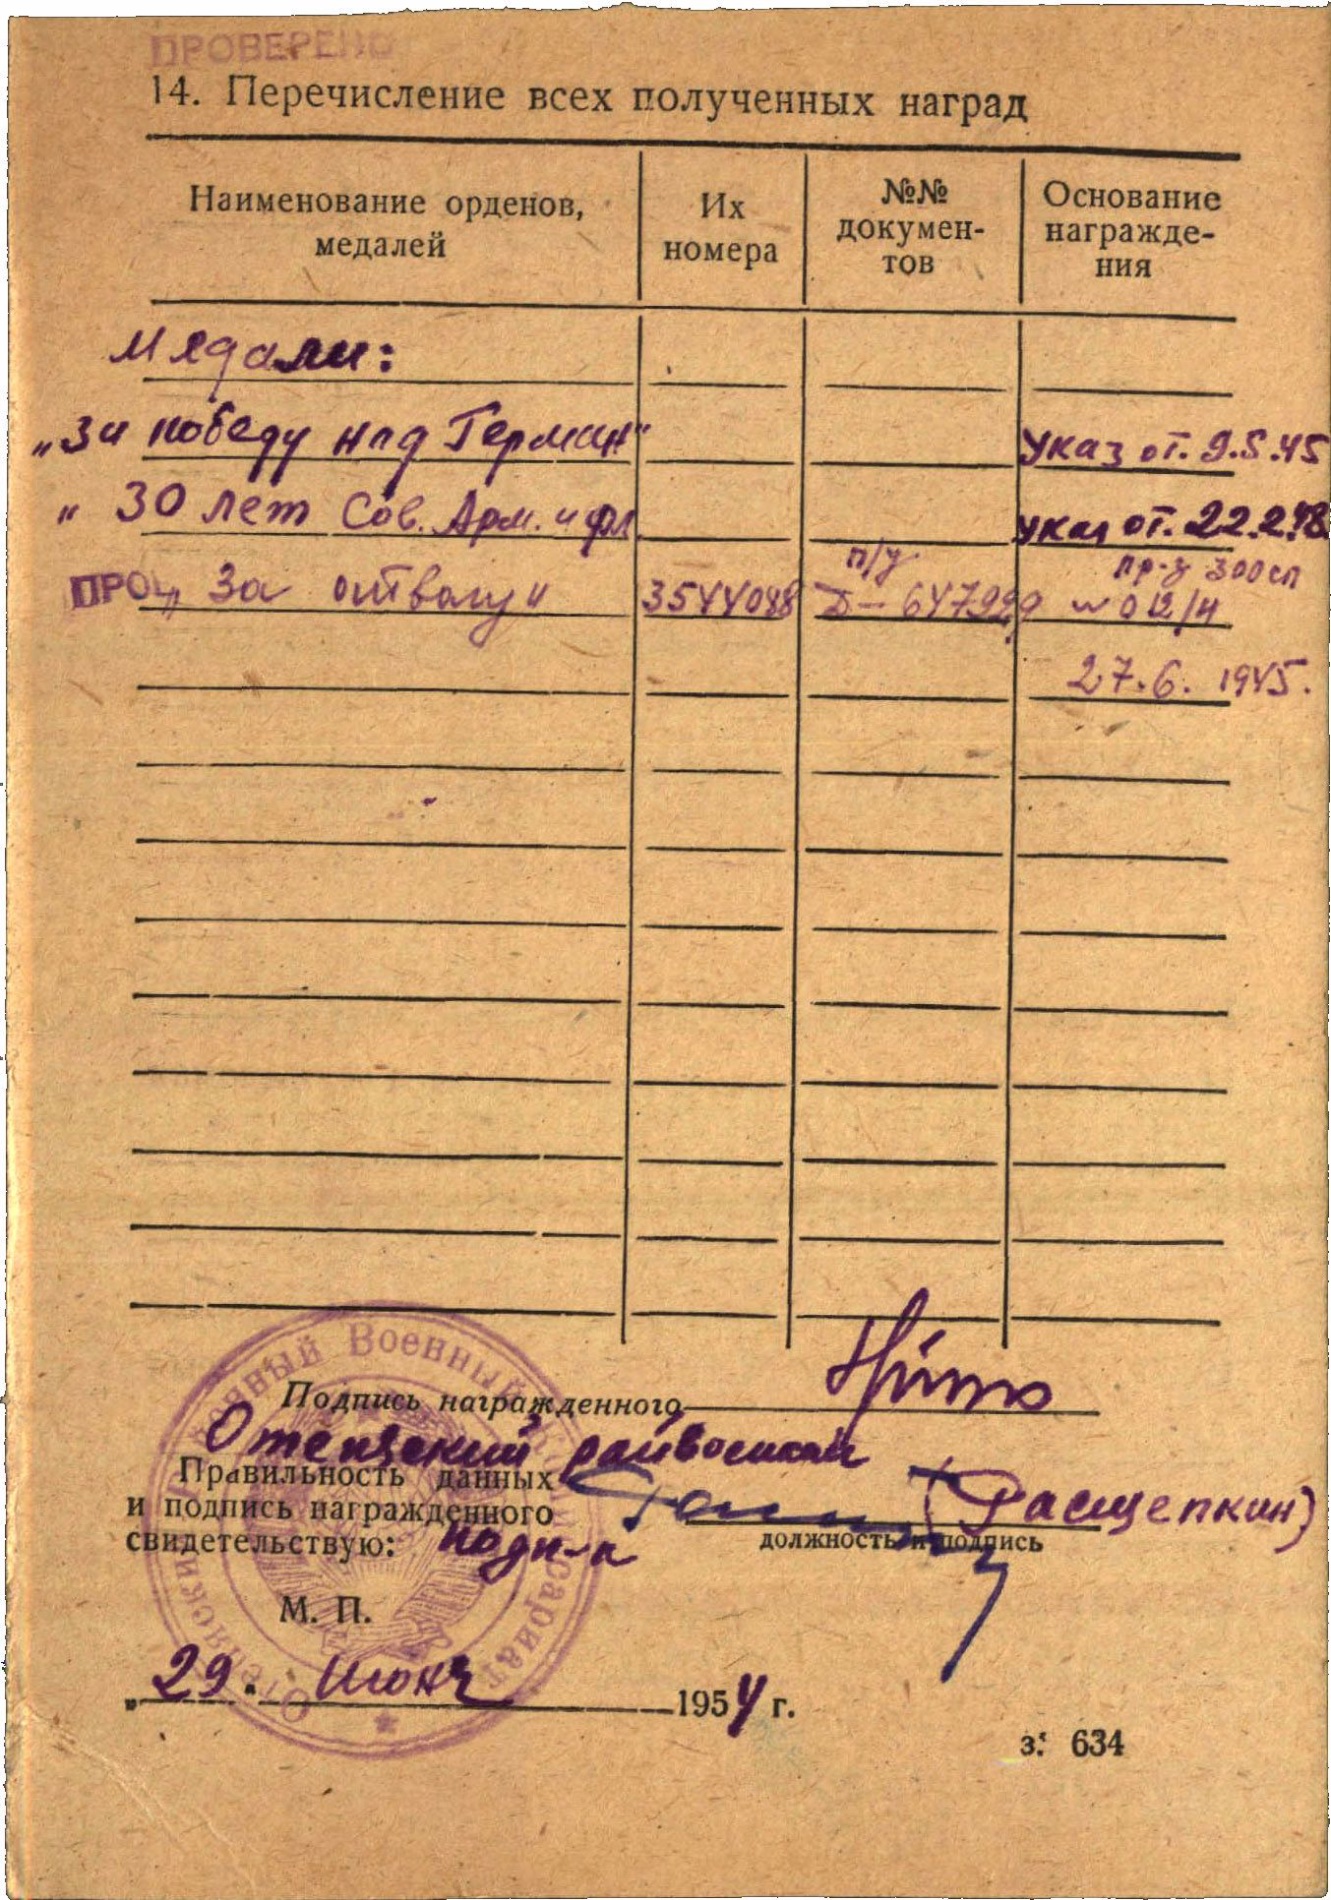 ПРОВЕРЕНО
14. Перечисление всех полученных наград
Наименование орденов, медалей
Их номера
№№ докумен-
тов
Основание
награжде-
ния
Медали:
„За победу над Герман"
Указ от. 9.5.45
„ 30 лет Сов. Арм. и фл
указ от. 22.2.48
п/у
пр-з 300 сп
ПРО „ За отвагу "
3544088
Д-647929
N 012/н
27.6. 1945.
Подпись награжденного
Отепяский райвоенком
Правильность данных
и подпись награжденного
свидетельствую: подп-к
(Расщепкин)
должность и подпись
М. П.
„ 29 . июня 1954 г.
з. 634
Отепяский Районный Военный Комиссариат